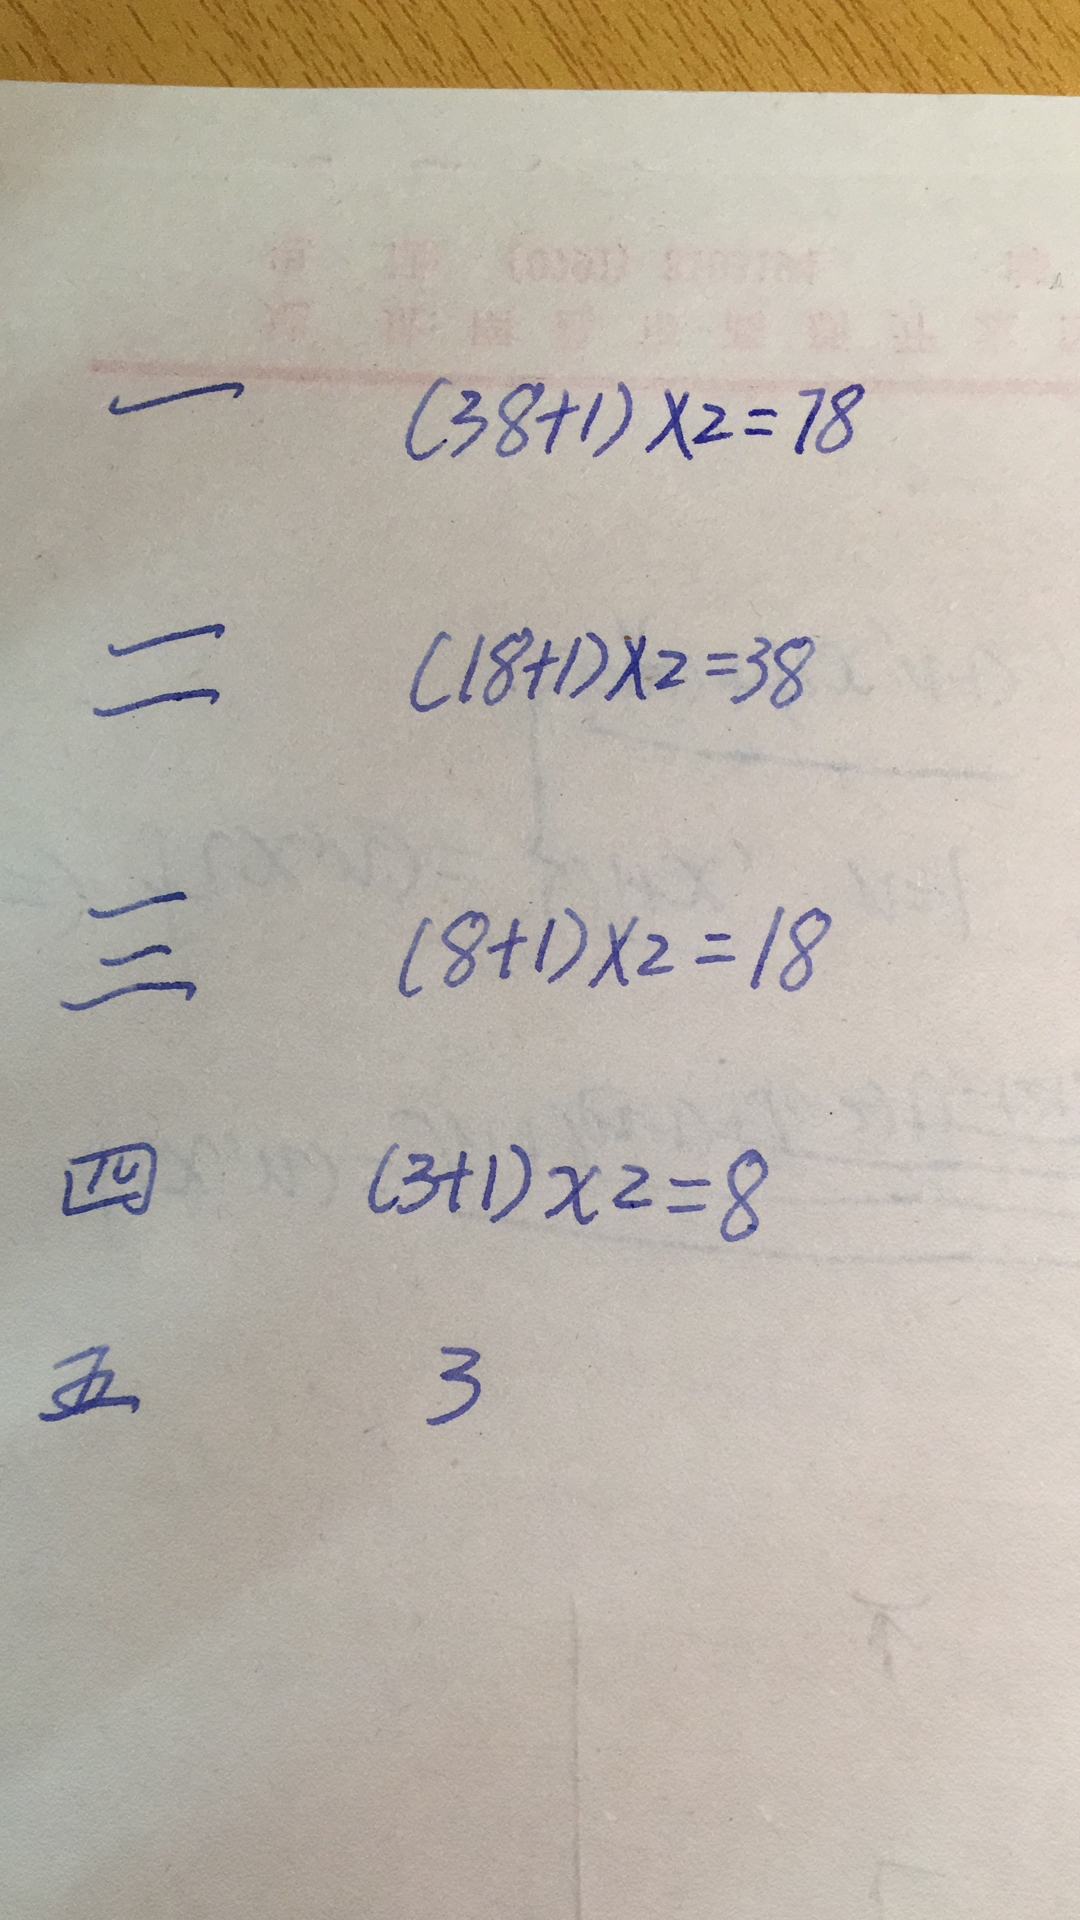 一 (38+1)×2=78
二 (18+1)×2=38
三 (8+1)×2=18
四 (3+1)×2=8
五 3